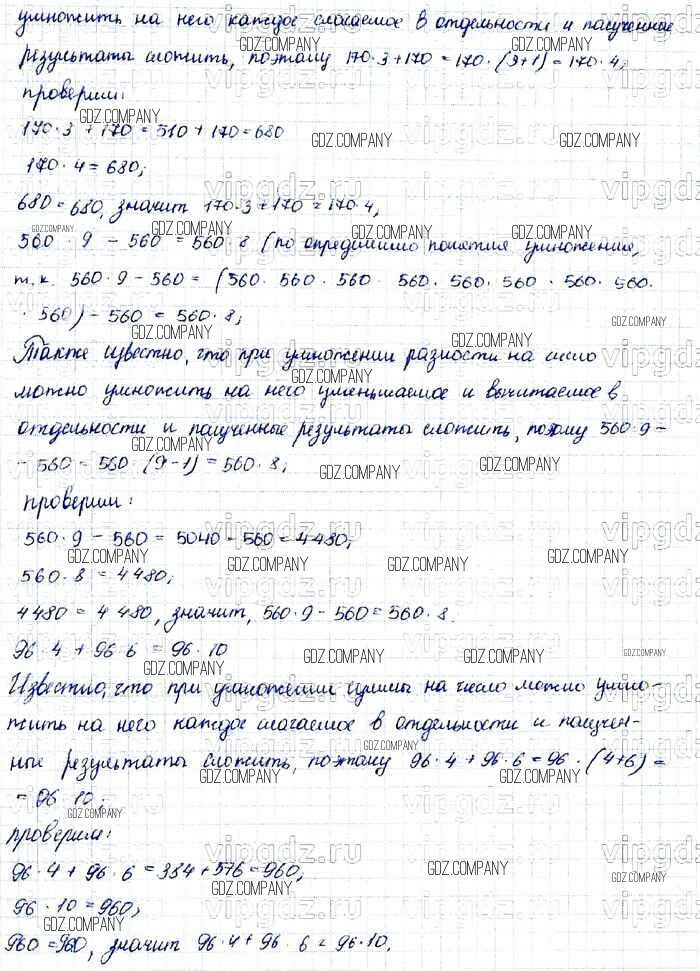 умножить на него каждое слагаемое в отдельности и полученные
результаты сложить, поэтому 170·3+170=170·(3+1)=170·4;
проверим:
170·3+170=510+170=680
170·4=680;
680=680, значит 170·3+170=170·4,
560·9-560=560·8 (по определению понятия умножения,
т.к. 560·9-560=(560·560·560·560·560·560·560·560·
·560)-560=560·8;
Также известно, что при умножении разности на число
можно умножить на него уменьшаемое и вычитаемое в
отдельности и полученные результаты сложить, поэтому 560·9-
-560=560·(9-1)=560·8;
проверим:
560·9-560=5040-560=4480;
560·8=4480;
4480=4480, значит, 560·9-560=560·8.
96·4+96·6=96·10
Известно, что при умножении суммы на число можно умно-
жить на него каждое слагаемое в отдельности и получен-
ные результаты сложить, поэтому 96·4+96·6=96·(4+6)=
=96·10;
проверим:
96·4+96·6=384+576=960,
96·10=960;
960=960, значит 96·4+96·6=96·10.
GDZ.COMPANY
vipgdz.ru